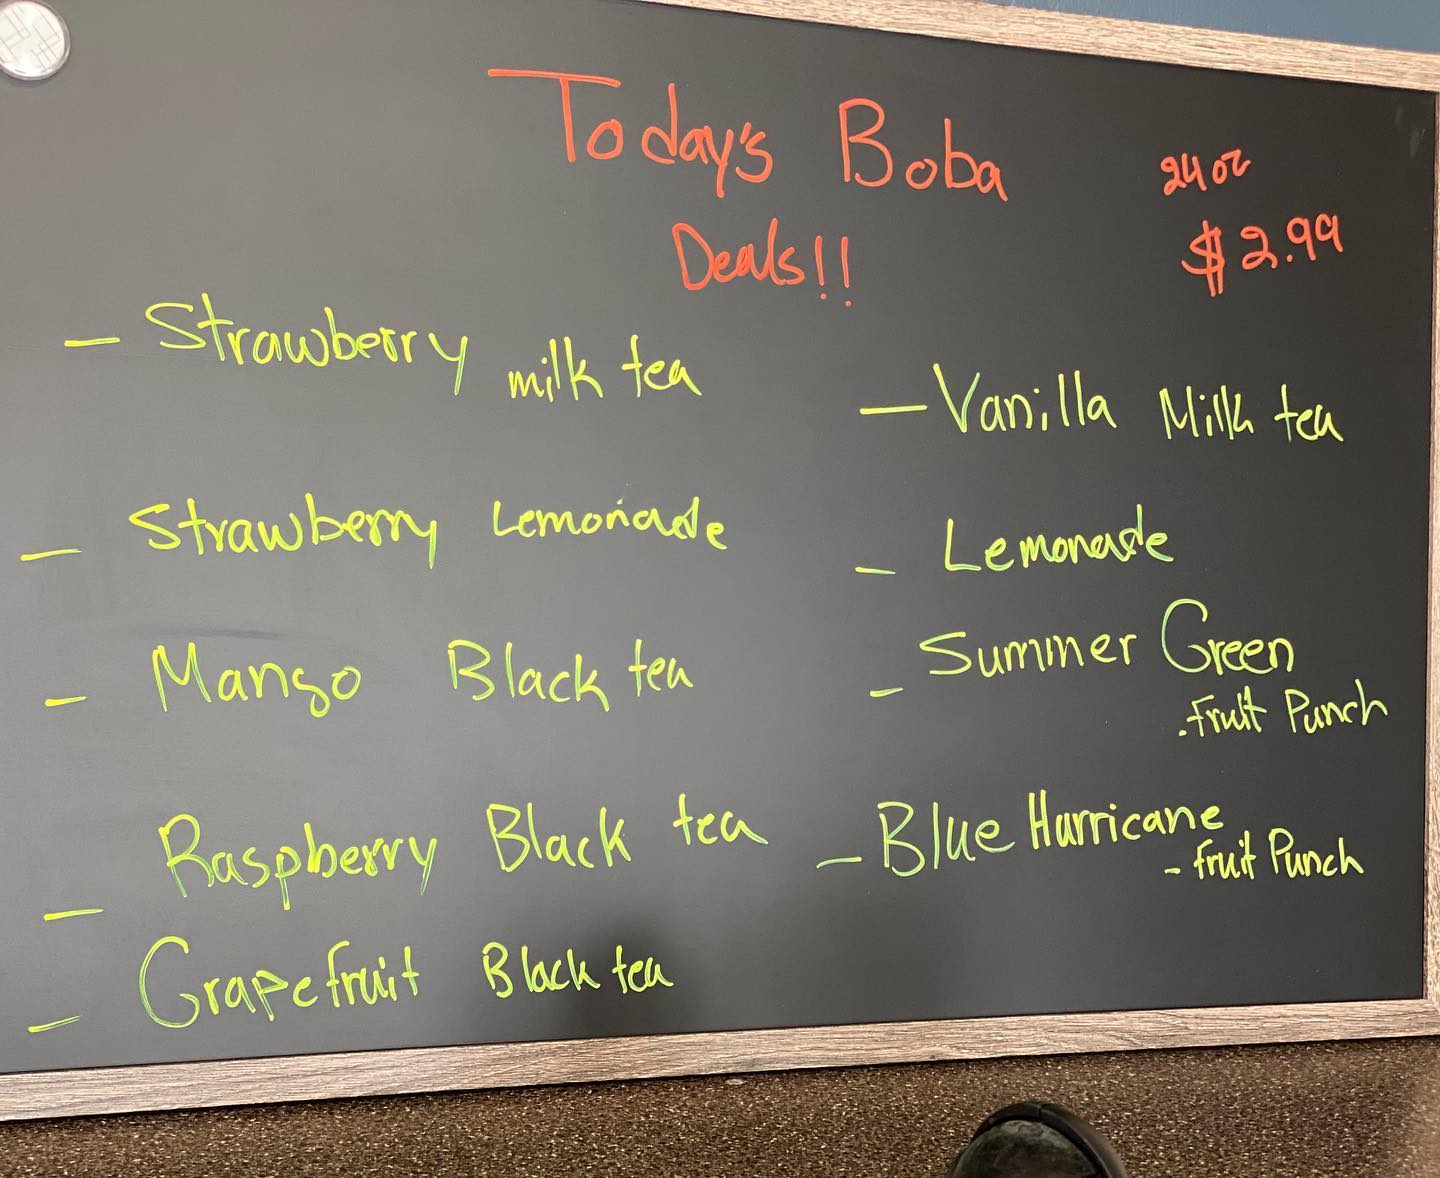 Today's Boba
Deals!!
24 oz
$2.99
- Strawberry milk tea
- Strawberry Lemonade
- Mango Black tea
- Raspberry Black tea
- Grapefruit Black tea
- Vanilla Milk tea
- Lemonade
- Summer Green
. Fruit Punch
- Blue Hurricane
- Fruit Punch